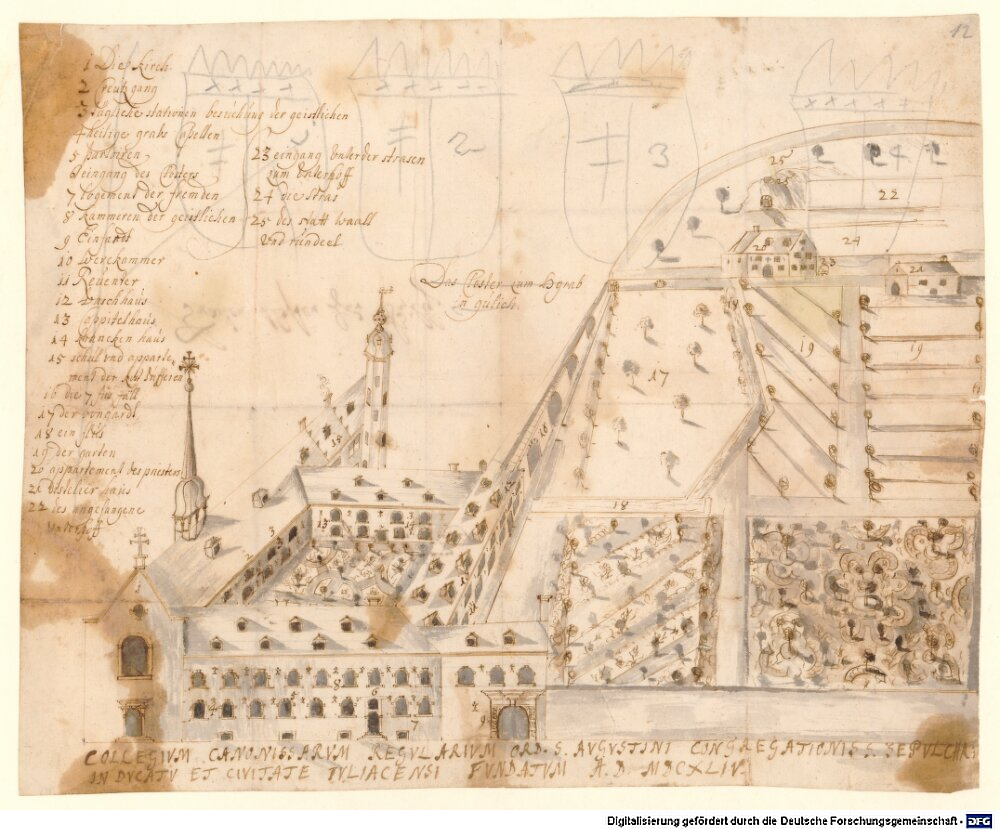 12
1 Die kirch
2 Creutzgang
3 tägliche stationen der geistlichen
4 heilige grabs Capellen
5 parlatoren
6 eingang des Closters
7 logement der fremden
8 kammeren der geistlichen
9 Einfardt
10 werckammer
11 Reuenter
12 waschhaus
13 Cappitelhaus
14 krancken haus
15 schul und apparte-
ment der
16 die 7 fus fäll
17 der bongardt
18 ein
19 der garten
20 appartement des priesters
21 distilier haus
22 des angefangene
23 eingang under der strasen
zum
24 die stras
25 des statt waall
und rundeel
Das Closter zum Hgrab
in gülich
2
3
4
COLLEGIVM CANONISSARVM REGVLARIVM ORD. S. AVGVSTINI CONGREGATIONIS S. SEPVLCHRI
IN DVCATV ET CIVITATE IVLIACENSI FVNDATVM A.D. MDCXLIV
Digitalisierung gefördert durch die Deutsche Forschungsgemeinschaft - DFG